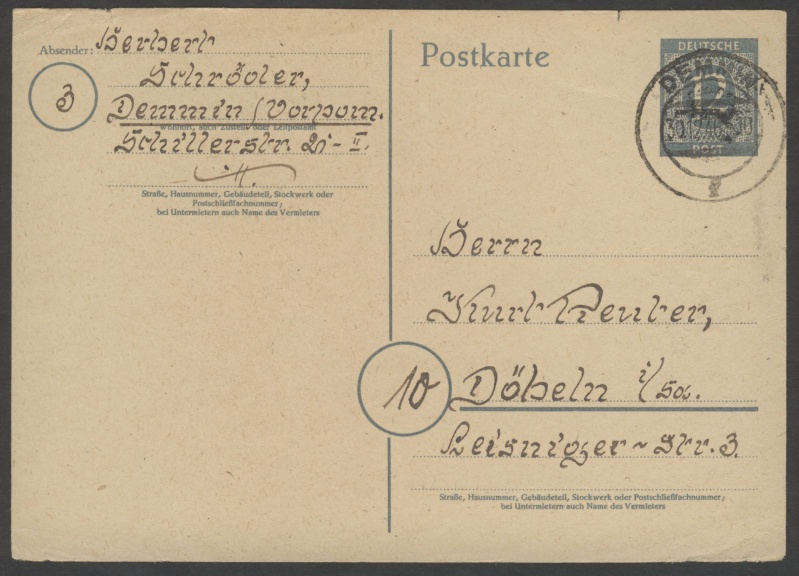 Absender: Herbert
Schröder,
3
Demmin/Vorpom.
Wohnort, auch Zustell- oder Leitpostamt
Schillerstr. 21-II.
Straße, Hausnummer, Gebäudeteil, Stockwerk oder
Postschließfachnummer;
bei Untermietern auch Name des Vermieters
Postkarte
DEUTSCHE
12
POST
Herrn
Kurt Reuter,
10 Döbeln i/Sa.
Leisniger-Str. 3.
Straße, Hausnummer, Gebäudeteil, Stockwerk oder Postschließfachnummer;
bei Untermietern auch Name des Vermieters